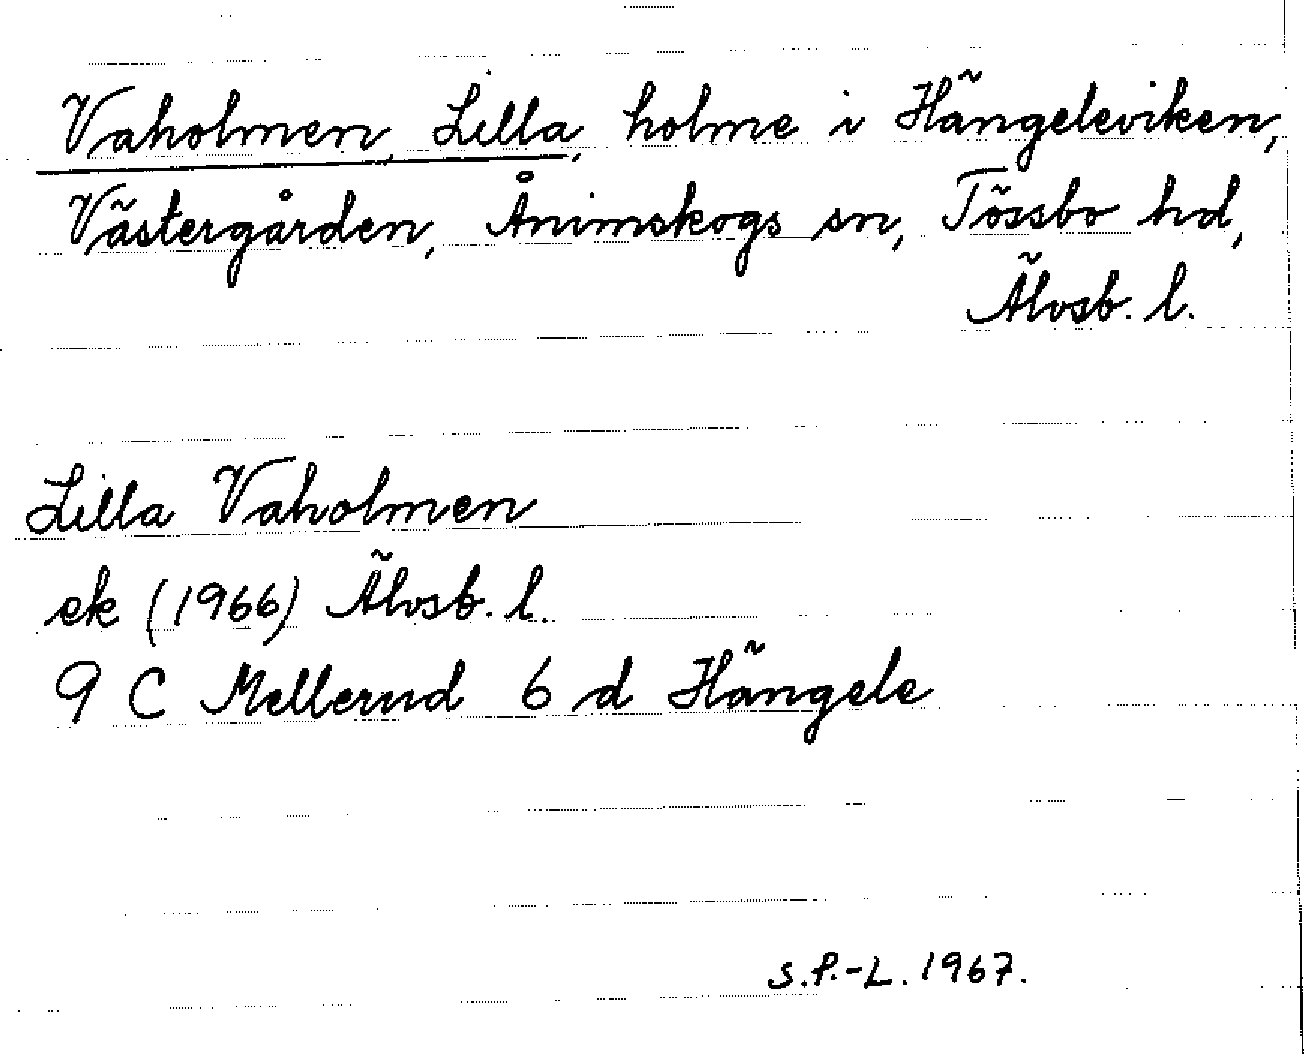 Vaholmen, Lilla, holme i Hängeleviken,
Västergården, Ånimskogs sn, Tössbo hd,
Älvsb. l.
Lilla Vaholmen
ek (1966) Älvsb. l.
9 C Mellerud 6 d Hängele
S.P.-L. 1967.